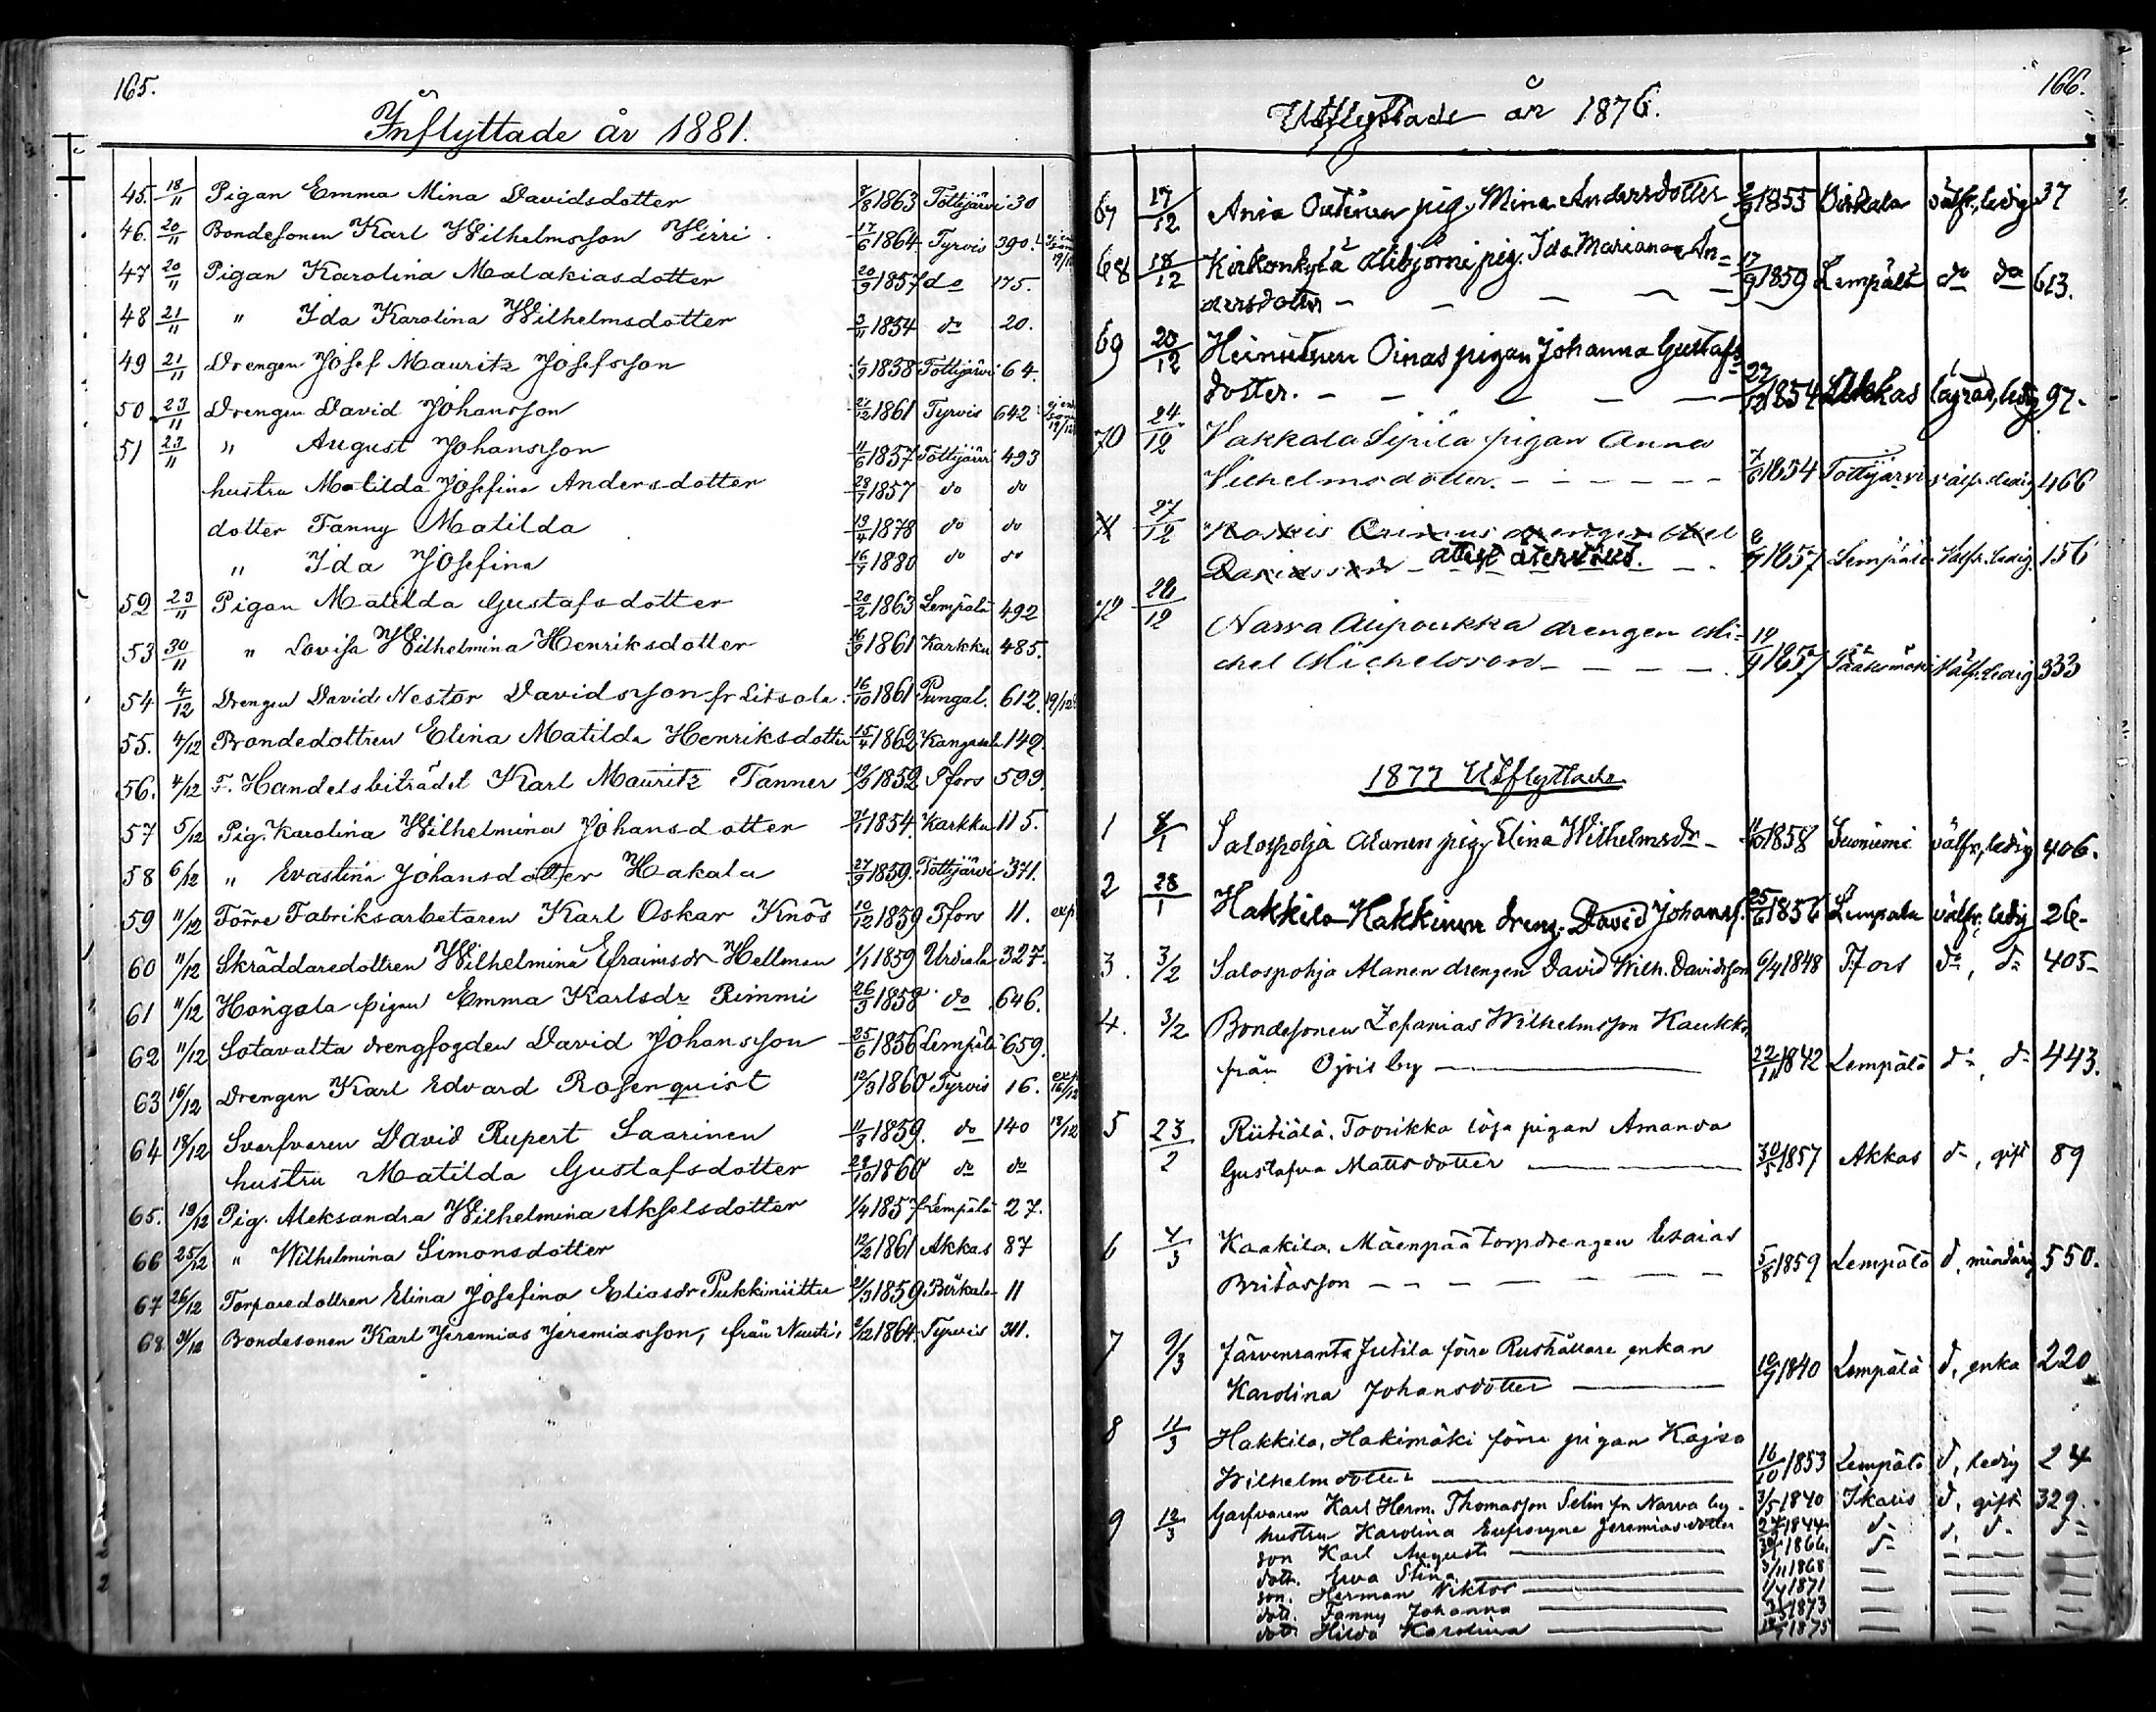 165.
Inflyttade år 1881.
45. 18/11 Pigan Emma Mina Davidsdotter 7/8 1863 Tottijärvi 30
46. 20/11 Bondesonen Karl Wilhelmsson Wirri 17/6 1864 Tyrvis 390.
47 20/11 Pigan Karolina Malakiasdotter 20/9 1857 do 175.
48 21/11 " Ida Karolina Wilhelmsdotter 3/11 1854 do 20.
49 21/11 Drengen Josef Mauritz Josefsson 1838 Tottijärvi 64.
50. 23/11 Drengen David Johansson 21/12 1861 Tyrvis 642
51 23/11 " August Johansson 11/6 1857 Tottijärvi 493
hustru Matilda Josefina Andersdotter 28/7 1857 do do
dotter Fanny Matilda 13/4 1878 do do
" Ida Josefina 16/7 1880 do do
52 23/11 Pigan Matilda Gustafsdotter 20/2 1863 Lempälä 492
53 30/11 " Lovisa Wilhelmina Henriksdotter 16/9 1861 Karkku 485.
54 4/12 Drengen David Nestor Davidsson fr Litsola 16/10 1861 Pungal. 612. 19/12
55. 4/12 Bondedottren Elina Matilda Henriksdotter 15/4 1862 Kangasala 149.
56. 4/12 F. Handelsbiträdet Karl Mauritz Tanner 1852 Tfors 599.
57 5/12 Pig. Karolina Wilhelmina Johansdotter 1854 Karkku 115.
58 6/12 " Evastina Johansdotter Hakala 27/9 1859. Tottijärvi 371.
59 11/12 Förre Fabriksarbetaren Karl Oskar Knös 10/12 1859 Tfors 11. exp
60 11/12 Skräddaredottren Wilhelmina Efraimsdr Hellman 1/1 1859 Urdiala 327.
61 11/12 Hoingola pigan Emma Karlsdr Rimmi 26/3 1858 do 646.
62 11/12 Sotavalta drengfogden David Johansson 25/6 1856 Lempälä 659.
63 16/12 Drengen Karl Edvard Rosenquist 12/3 1860 Tyrvis 16. exp 16/12
64 18/12 Svarfvaren David Rupert Saarinen 11/3 1859. do 140 18/12
hustru Matilda Gustafsdotter 29/10 1860 do do
65. 19/12 Pig. Aleksandra Wilhelmina Akselsdotter 1/4 1857 Lempälä 27.
66 25/12 " Wilhelmina Simonsdotter 12/2 1861 Akkas 87
67 26/12 Torparedottren Elina Josefina Eliasdr Pukkiniittu 21/3 1859 Birkala 11
68. 31/12 Bondesonen Karl Jeremias Jeremiasson, från Nuuti, 2/12 1864. Tyrvis 311.
166.
Utflyttade år 1876.
67 17/12 Ania Outinen pig. Mina Andersdotter 2/9 1855 Birkala välfr, ledig 37
68 18/12 Kirkonkylä Alibjörni pig. Ida Mariana An=
dersdotter 17/9 1859 Lempälä do do 613.
69 20/12 Heinutnen Oinas pigan Johanna Gustafs-
dotter. 22/12 1854 Akkas lägrad, ledig 97.
70 24/12 Vakkala Sipila pigan Anna
Wilhelmsdotter. 7/6 1854 Tottijärvi välfr. ledig 466
71 27/12 drengen
Davidsson attest återvänd. 1857 Lempälä Välfr. ledig. 156
72 28/12 Narva Alipoukka drengen Mi=
chel Michelsson 19/4 1857 Sääksmäki Välfr. ledig 333
1877 Utflyttade
1 8/1 Salospohja Alanen pig. Elina Wilhelmsdr 1858 Suoniemi välfr, ledig 406.
2 28/1 Hakkila Hakkinen dreng. David Johanss. 25/6 1856 Lempälä välfr, ledig 26
3. 3/2 Salospohja Alanen drengen David Wilh. Davidsson 6/4 1848 Tfors do, do 405
4. 3/2 Bondesonen Zefanias Wilhelmsson Kaukko
från Ojois by 22/11 1842 Lempälä do, do 443.
5 23/2 Riitiälä. Toorikka lösa pigan Amanda
Gustafva Mattsdotter 30/5 1857 Akkas do, gift 89
6 4/3 Kaakila. Mäenpää torpdrengen Esaias
Britasson 5/8 1859 Lempälä d, mindårig 550.
7 9/3 Järvenranta Jutila förre Rusthållare enkan
Karolina Johansdotter 19/7 1840 Lempälä d, enka 220
8 11/3 Hakkila, Hakimäki förre pigan Kajsa
Wilhelmsdotter 16/10 1853 Lempälä d, ledig 24
9 12/3 Garfvaren Karl Herm. Thomasson Selin fr Narva by 3/5 1840 Ikalis d, gift 329.
hustru Karolina Eufrosyne Jeremiasdotter 1844 do d, do do
son Karl August 1866. do
dott. Eva Stina 3/11 1868
son. Herman Viktor 1/4 1871
dott. Fanny Johanna 1873
dott. Hilda Karolina 1875